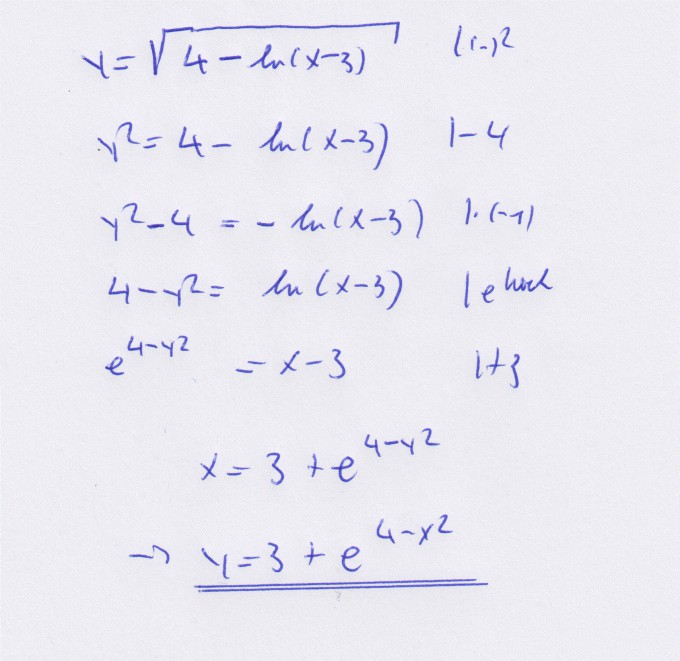 y = √(4 - ln(x-3)) |(..)²
y² = 4 - ln(x-3) |-4
y²-4 = - ln(x-3) |·(-1)
4-y² = ln(x-3) |e hoch
e^(4-y²) = x-3 |+3
x = 3 + e^(4-y²)
→ y = 3 + e^(4-x²)